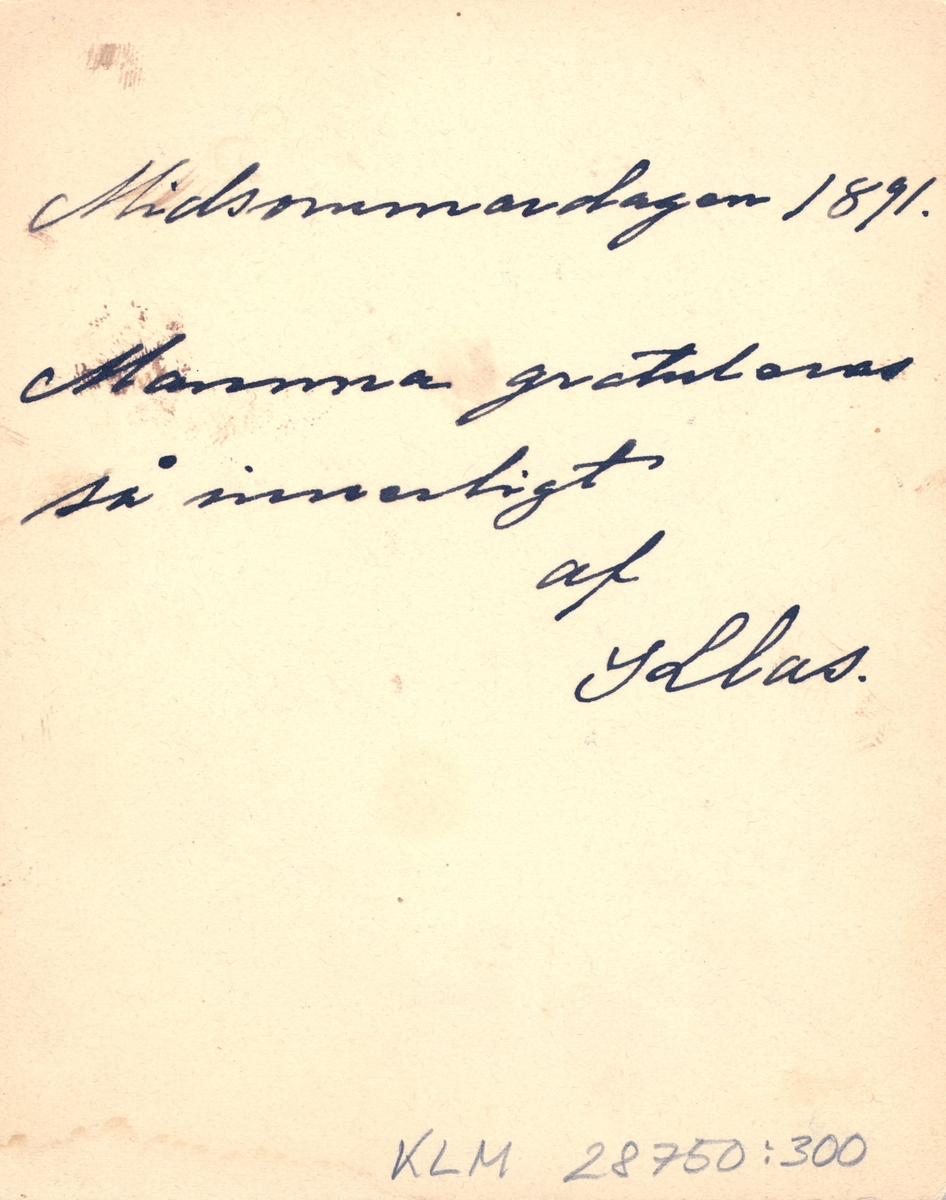 Midsommardagen 1891.
Mamma gratuleras
så innerligt
af
KLM 28750:300